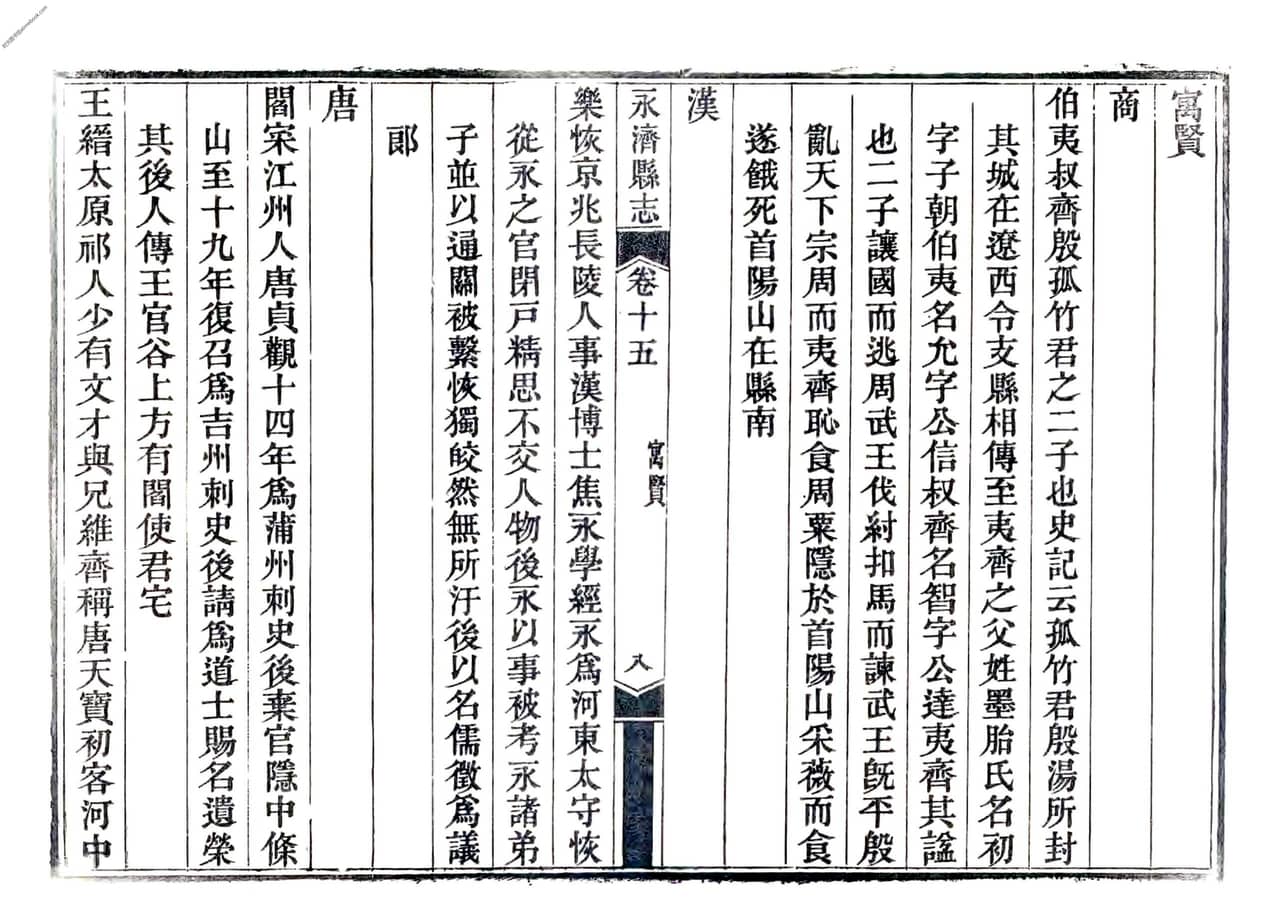 寓賢
商
伯夷叔齊殷孤竹君之二子也史記云孤竹君殷湯所封
其城在遼西令支縣相傳至夷齊之父姓墨胎氏名初
字子朝伯夷名允字公信叔齊名智字公達夷齊其諡
也二子讓國而逃周武王伐紂扣馬而諫武王旣平殷
亂天下宗周而夷齊恥食周粟隱於首陽山采薇而食
遂餓死首陽山在縣南
漢
永濟縣志 卷十五 寓賢 八
樂恢京兆長陵人事漢博士焦永學經永爲河東太守恢
從永之官閉戸精思不交人物後永以事被考永諸弟
子並以通關被繫恢獨皎然無所汙後以名儒徵爲議
郞
唐
閻寀江州人唐貞觀十四年爲蒲州刺史後棄官隱中條
山至十九年復召爲吉州刺史後請爲道士賜名遺榮
其後人傳王官谷上方有閻使君宅
王縉太原祁人少有文才與兄維齊稱唐天寶初客河中